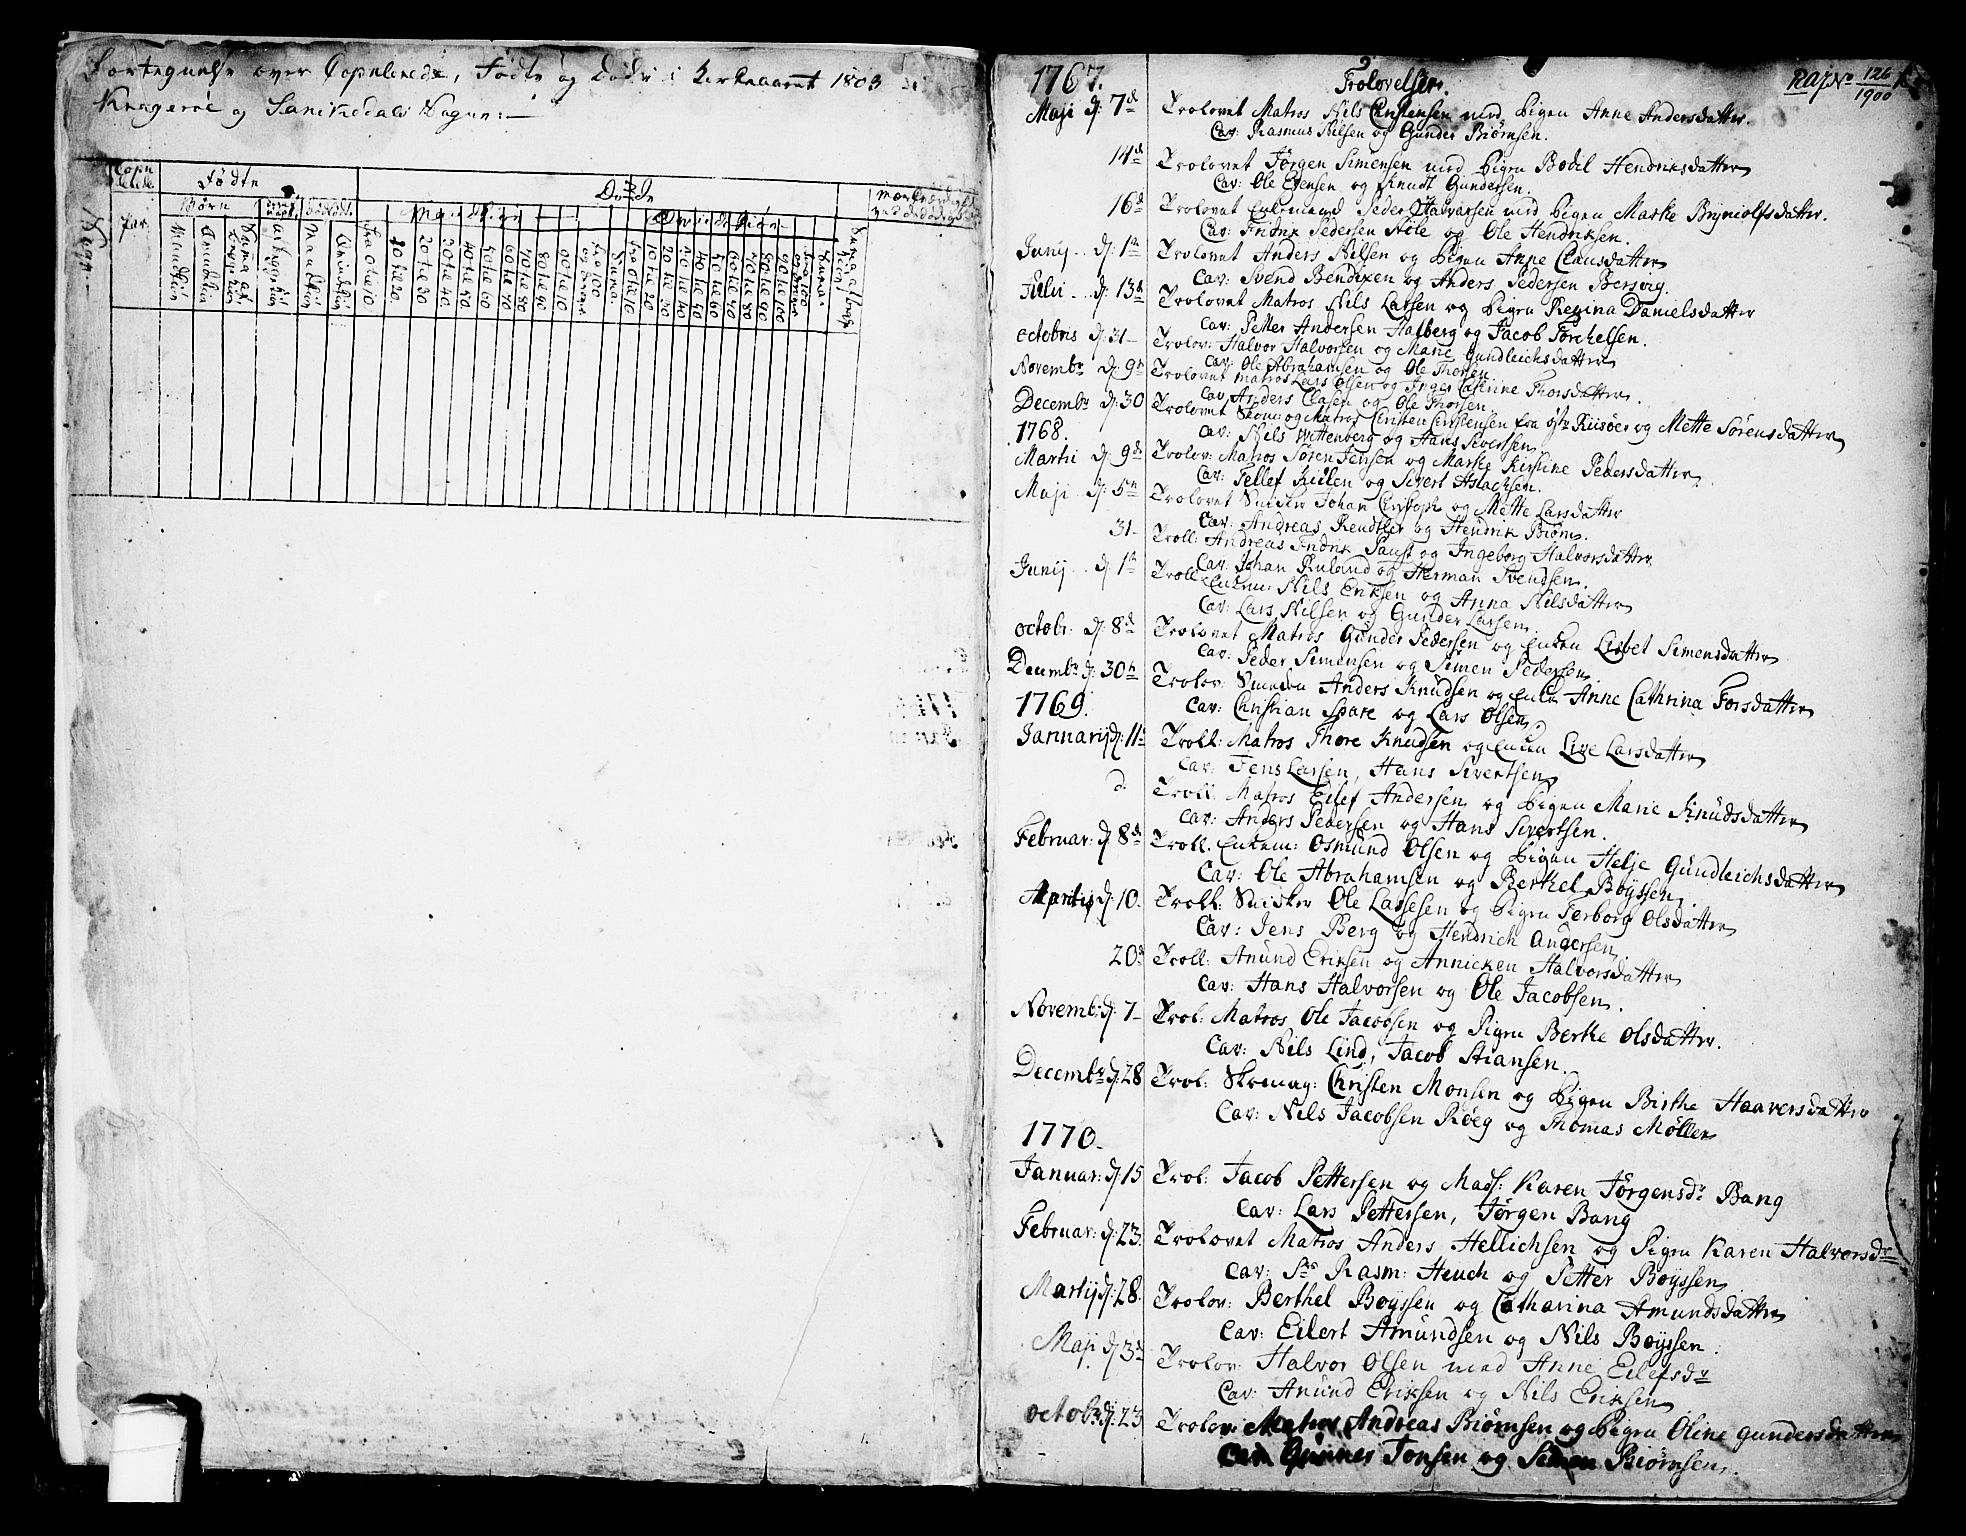 Fortegnelse over Copulerede, Fødte og Døde i Kirkeaaret 1803
Kragerøe og Sanikedals Sogne:
Copulerede
Fødte
Døde
Børn
Mandkiøn
Par.
Qvindekiøn
fra 0 til 10
10 til 20
20 til 30
30 til 40
Summa
1767.
Trolovelser.
RAJNo 126/1900
Maji d: 7de Trolovet Matros Nils Christensen med Pigen Anne Andersdatter.
Cav: Rasmus Nilsen og Gunder Biørnsen.
14de Trolovet Jörgen Simensen med Pigen Bodil Hendriksdatter
Cav: Ole Evensen og Knudt Gundersen.
16de Trolovet Enkemand Peder Halvorsen med Pigen Marthe Bryniolfsdatter.
Cav: Fridrik Pedersen Hole og Ole Hendriksen.
Junij d: 1te Trolovet Anders Nilsen og Pigen Anne Clausdatter
Cav: Svend Bendixen og Anders Pedersen Bersvig.
Julii d: 13de Trolovet Matros Nils Larsen og Pigen Regina Danielsdatter
Cav: Petter Andersen Halberg og Jacob Torchelsen.
octobris d: 31 Trolov: Halvor Halvorsen og Marie Gundleichsdatter
Cav: Ole Abrahamsen og Ole Thorsen
Novembr d: 9n Trolovet Matros Lars Olsen og Inger Catrine Thorsdatter.
Cav: Anders Clasen og Ole Thorsen
Decembr d: 30 Trolovet Skom: og Matros Christen Christensen fra Øster Riisöer og Mette Sörensdatter
Cav: Nils Wittenberg og Hans Sivertsen
1768.
Martii d: 9de Trolov: Matros Sören Jensen og Marthe Kirstine Pedersdatter
Cav: Tellef Kittilsen og Sivert Aslachsen.
Maji d: 5te Trolovet Snidker Johan Christoph og Mette Larsdatter
Cav: Andreas Rendtler og Hendrik Biörn.
31 Troll: Andreas Fridrik Paust og Ingeborg Halvorsdatter
Cav: Johan Ruland og Herman Svendsen.
Junij d: 1te Troll: Enkem: Nils Eriksen og Anna Nilsdatter
Cav: Lars Nilsen og Gunder Larsen
octobr: d: 8de Trolovet Matros Gunder Pedersen og Enken Lisbet Simensdatter
Cav: Peder Simensen og Simen Pedersen.
Decembr d: 30te Trolov: Smeden Anders Knudsen og Enken Anne Cathrina Torsdatter
Cav: Christian Spare og Lars Olsen
1769.
Januarij d: 11te Troll: Matros Thore Knudsen og Enken Live Larsdatter
Cav: Jens Larsen, Hans Sivertsen
d. Troll: Matros Eilef Andersen og Pigen Marie Knudsdatter
Cav: Anders Pedersen og Hans Sivertsen.
Februar: d: 8de Troll. Enkem: Osmund Olsen og Pigen Helje Gundleichsdatter
Cav: Ole Abrahamsen og Berthel Boyssen.
d: 10. Troll: Snidker Ole Lassesen og Pigen Terborg Olsdatter
Cav: Jens Berg og Hendrich Andersen
20de Troll: Anund Eriksen og Annicken Halvorsdatter
Cav: Hans Halvorsen og Ole Jacobsen.
Novemb: d: 7 Trol: Matros Ole Jacobsen og Pigen Berthe Olsdatter.
Cav: Nils Lind, Jacob Stiansen.
Decembr d: 28 Trol: Skomag: Christen Monsen og Pigen Birthe Haaversdatter
Cav: Nils Jacobsen Röeg og Thomas Möller
1770.
Januar: d: 15 Trol: Jacob Pettersen og Mads: Karen Jörgensdr Bang
Cav: Lars Pettersen, Jörgen Bang
Februar: d: 23. Trolovet Matros Anders Hellichsen og Pigen Karen Halvorsdr
Cav: Sr Rasm: Heuch og Petter Boyssen
Martij d: 28. Trolov: Berthel Boyssen og Catharina Amundsdatter
Cav: Eilert Amundsen og Nils Boyssen.
Maji d: 3de Trolov: Halvor Olsen med Anne Eilefsdr
Cav: Anund Eriksen og Nils Eriksen
octobr d: 23 Trolov: Matros Andreas Biörnsen og Pigen Oline Gundersdatter
Cav: Gunner Tonsen og Simon Biörnsen.